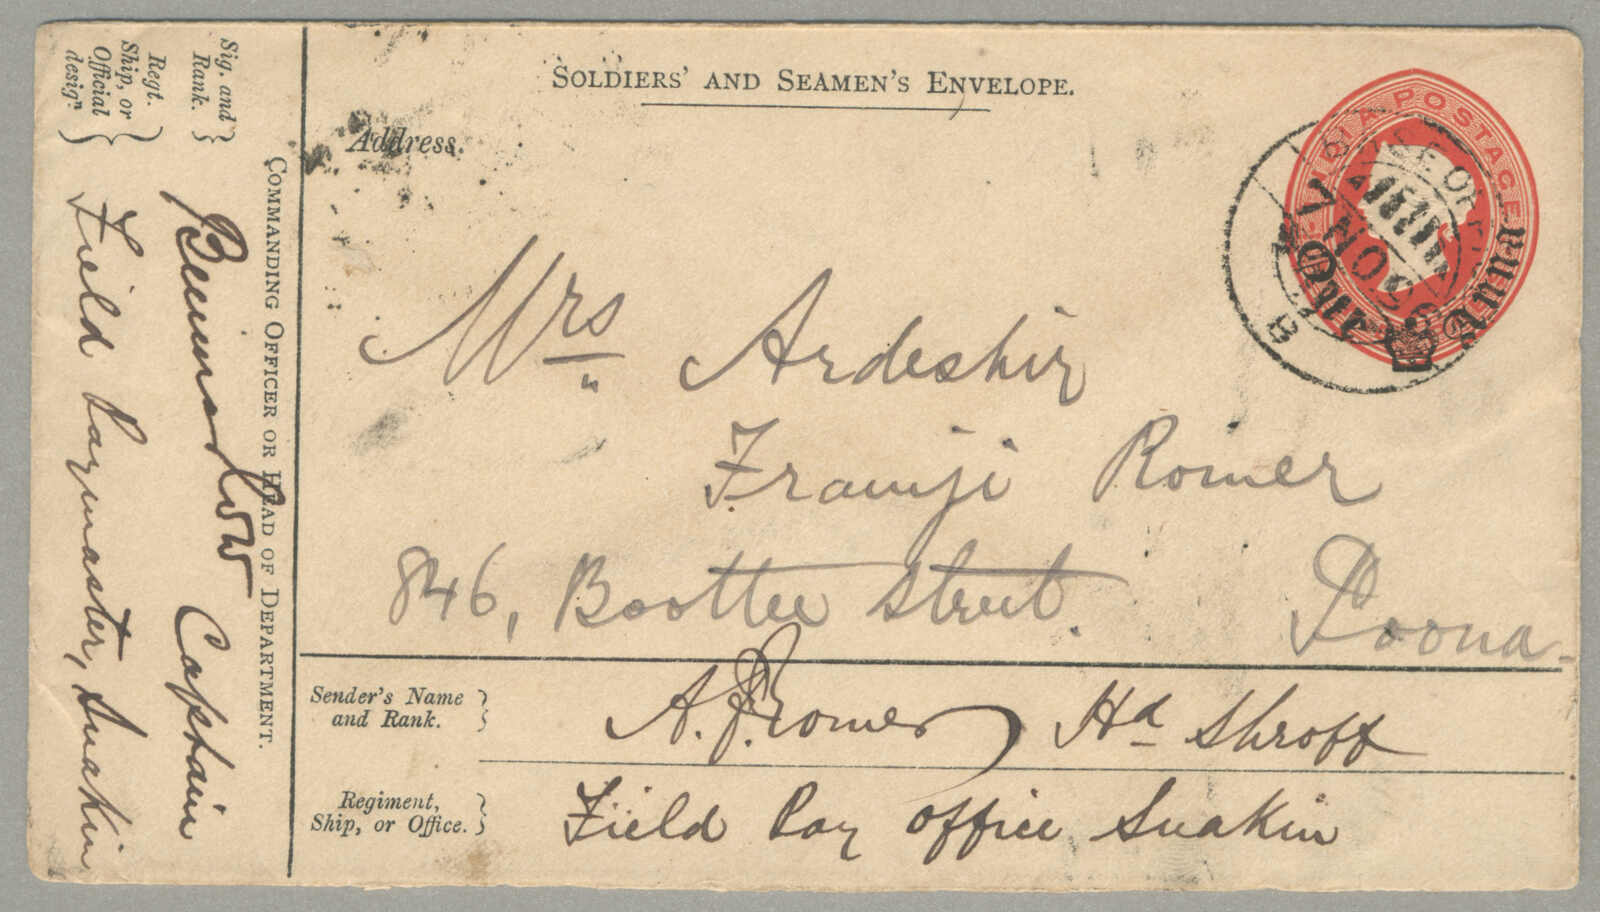 SOLDIERS' AND SEAMEN'S ENVELOPE.
Address.
INDIA POSTAGE
One Anna
NO 96
B
Mrs Ardeshir
Framji Romer
846, Boottee Street.
Poona
Sender's Name and Rank.
A. F. Romer Hd Shroff
Regiment, Ship, or Office.
Field Pay office Suakin
COMMANDING OFFICER OR HEAD OF DEPARTMENT.
Sig. and Rank.
Captain
Regt. Ship, or Official design.
Field Paymaster, Suakin